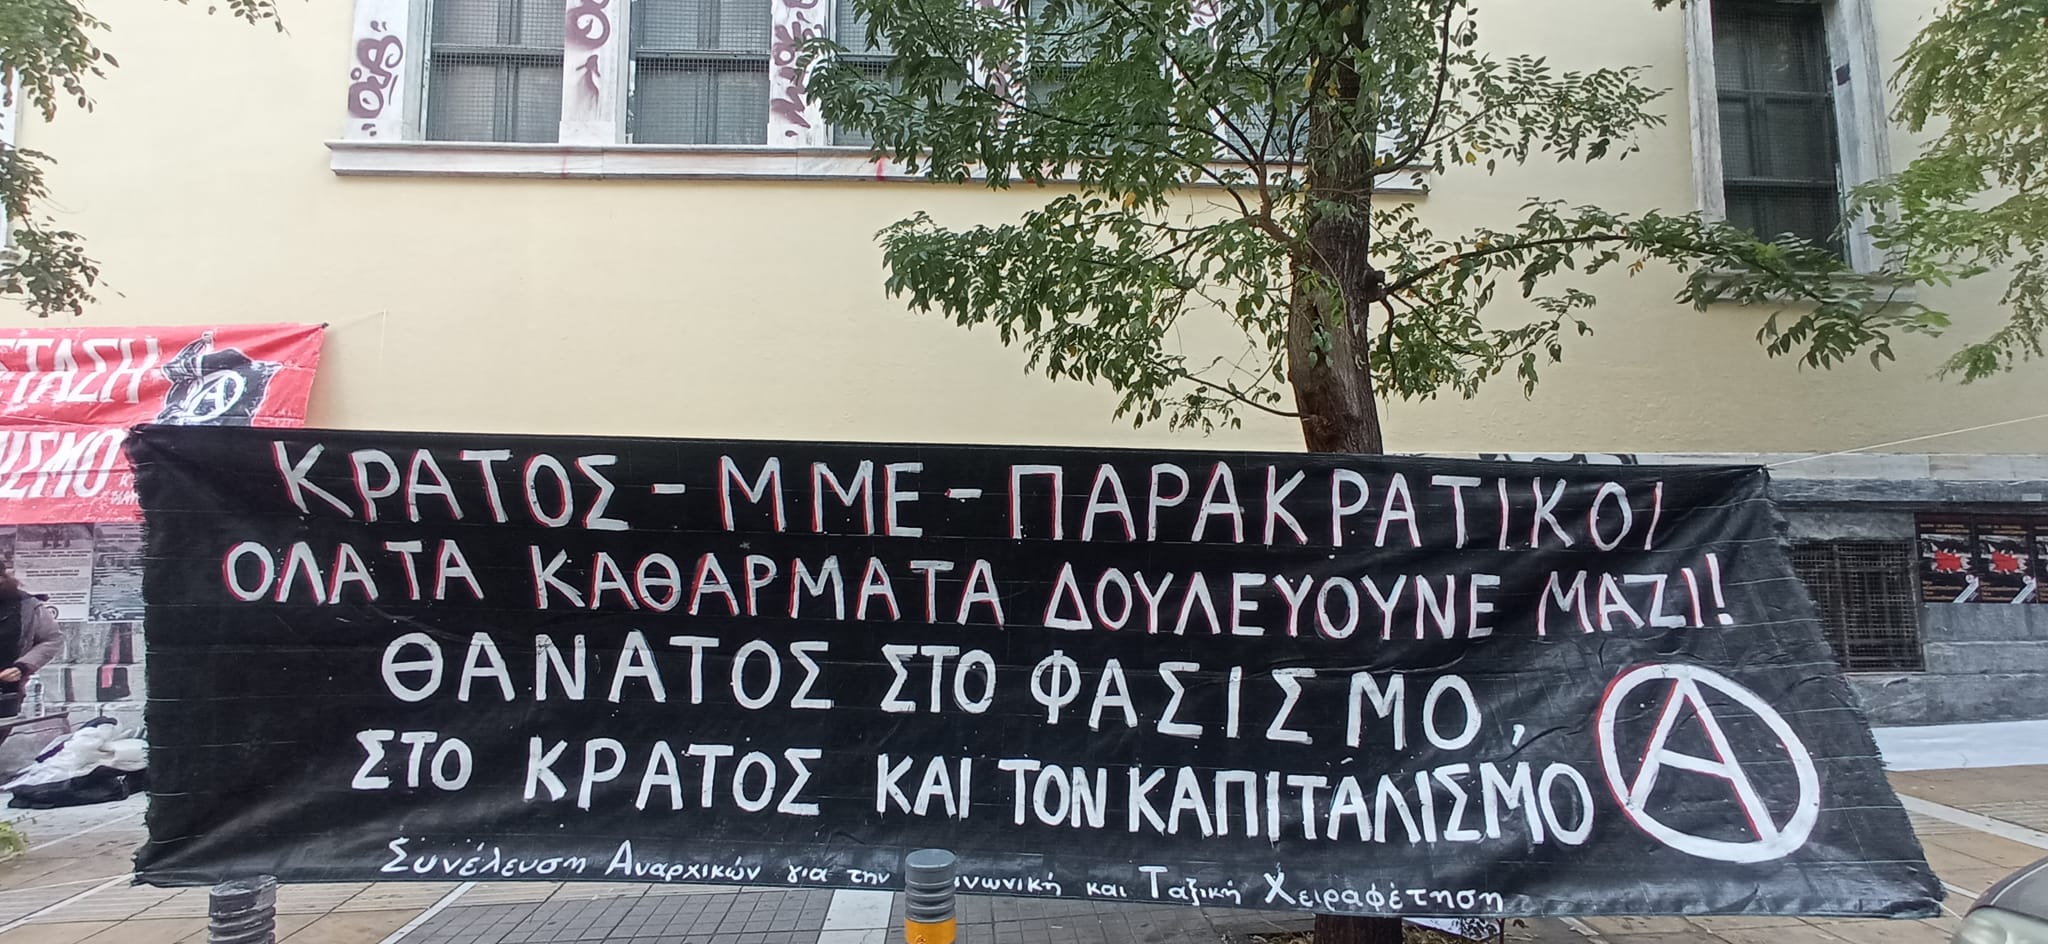 ΚΡΑΤΟΣ - ΜΜΕ - ΠΑΡΑΚΡΑΤΙΚΟΙ
ΟΛΑ ΤΑ ΚΑΘΑΡΜΑΤΑ ΔΟΥΛΕΥΟΥΝΕ ΜΑΖΙ!
ΘΑΝΑΤΟΣ ΣΤΟ ΦΑΣΙΣΜΟ,
ΣΤΟ ΚΡΑΤΟΣ ΚΑΙ ΤΟΝ ΚΑΠΙΤΑΛΙΣΜΟ
Συνέλευση Αναρχικών για την και Ταξική Χειραφέτηση